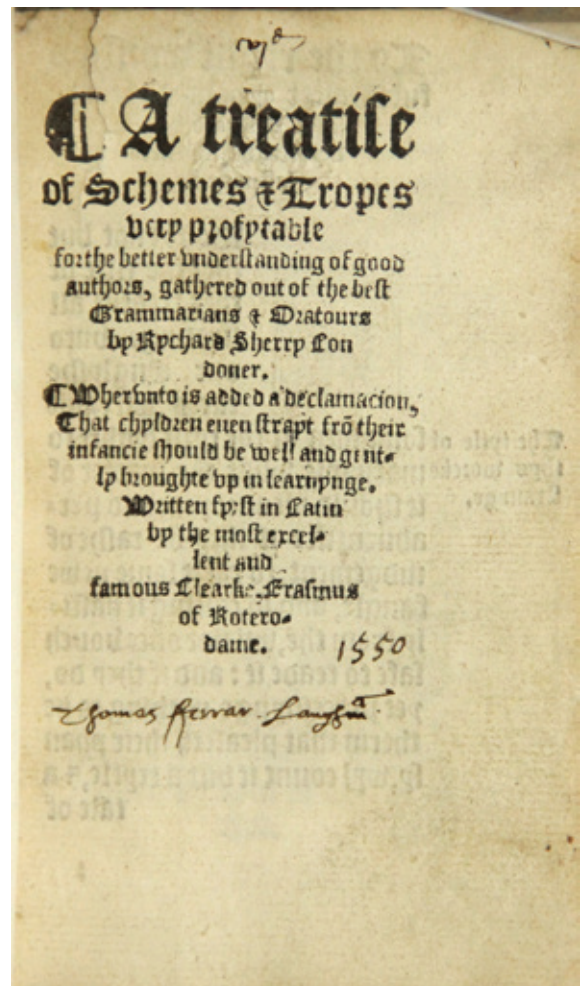 vjd
¶ A treatise
of Schemes & Tropes
very profytable
for the better vnderstanding of good
authors, gathered out of the best
Grammarians & Oratours
by Rychard Sherry Lon
doner.
¶ Whervnto is added a declamacion,
That chyldren euen strapt frō their
infancie should be well and gent-
ly broughte vp in learnynge.
Written fyrst in Latin
by the most excel-
lent and
famous Clearke, Erasmus
of Rotero-
dame. 1550
Thomas Ferrar